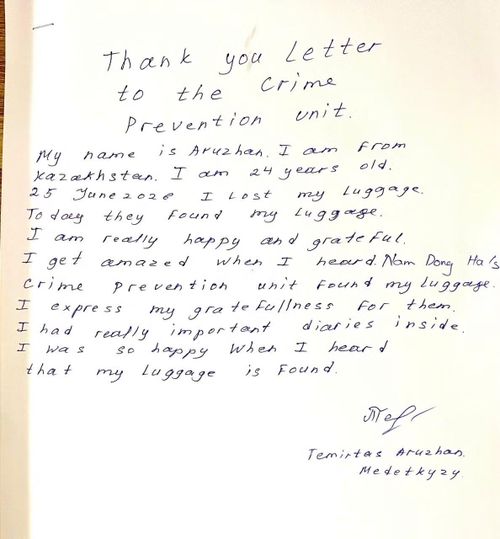 Thank you Letter
to the Crime
Prevention unit.
My name is Aruzhan. I am from
Kazakhstan. I am 24 years old.
25 June 2026 I Lost my Luggage.
Today they found my Luggage.
I am really happy and grateful.
I get amazed when I heard. Nam Dong Ha's
Crime prevention unit found my Luggage.
I express my gratefullness for them.
I had really important diaries inside.
I was so happy when I heard
that my Luggage is found.
Temirtas Aruzhan.
Medetkyzy.